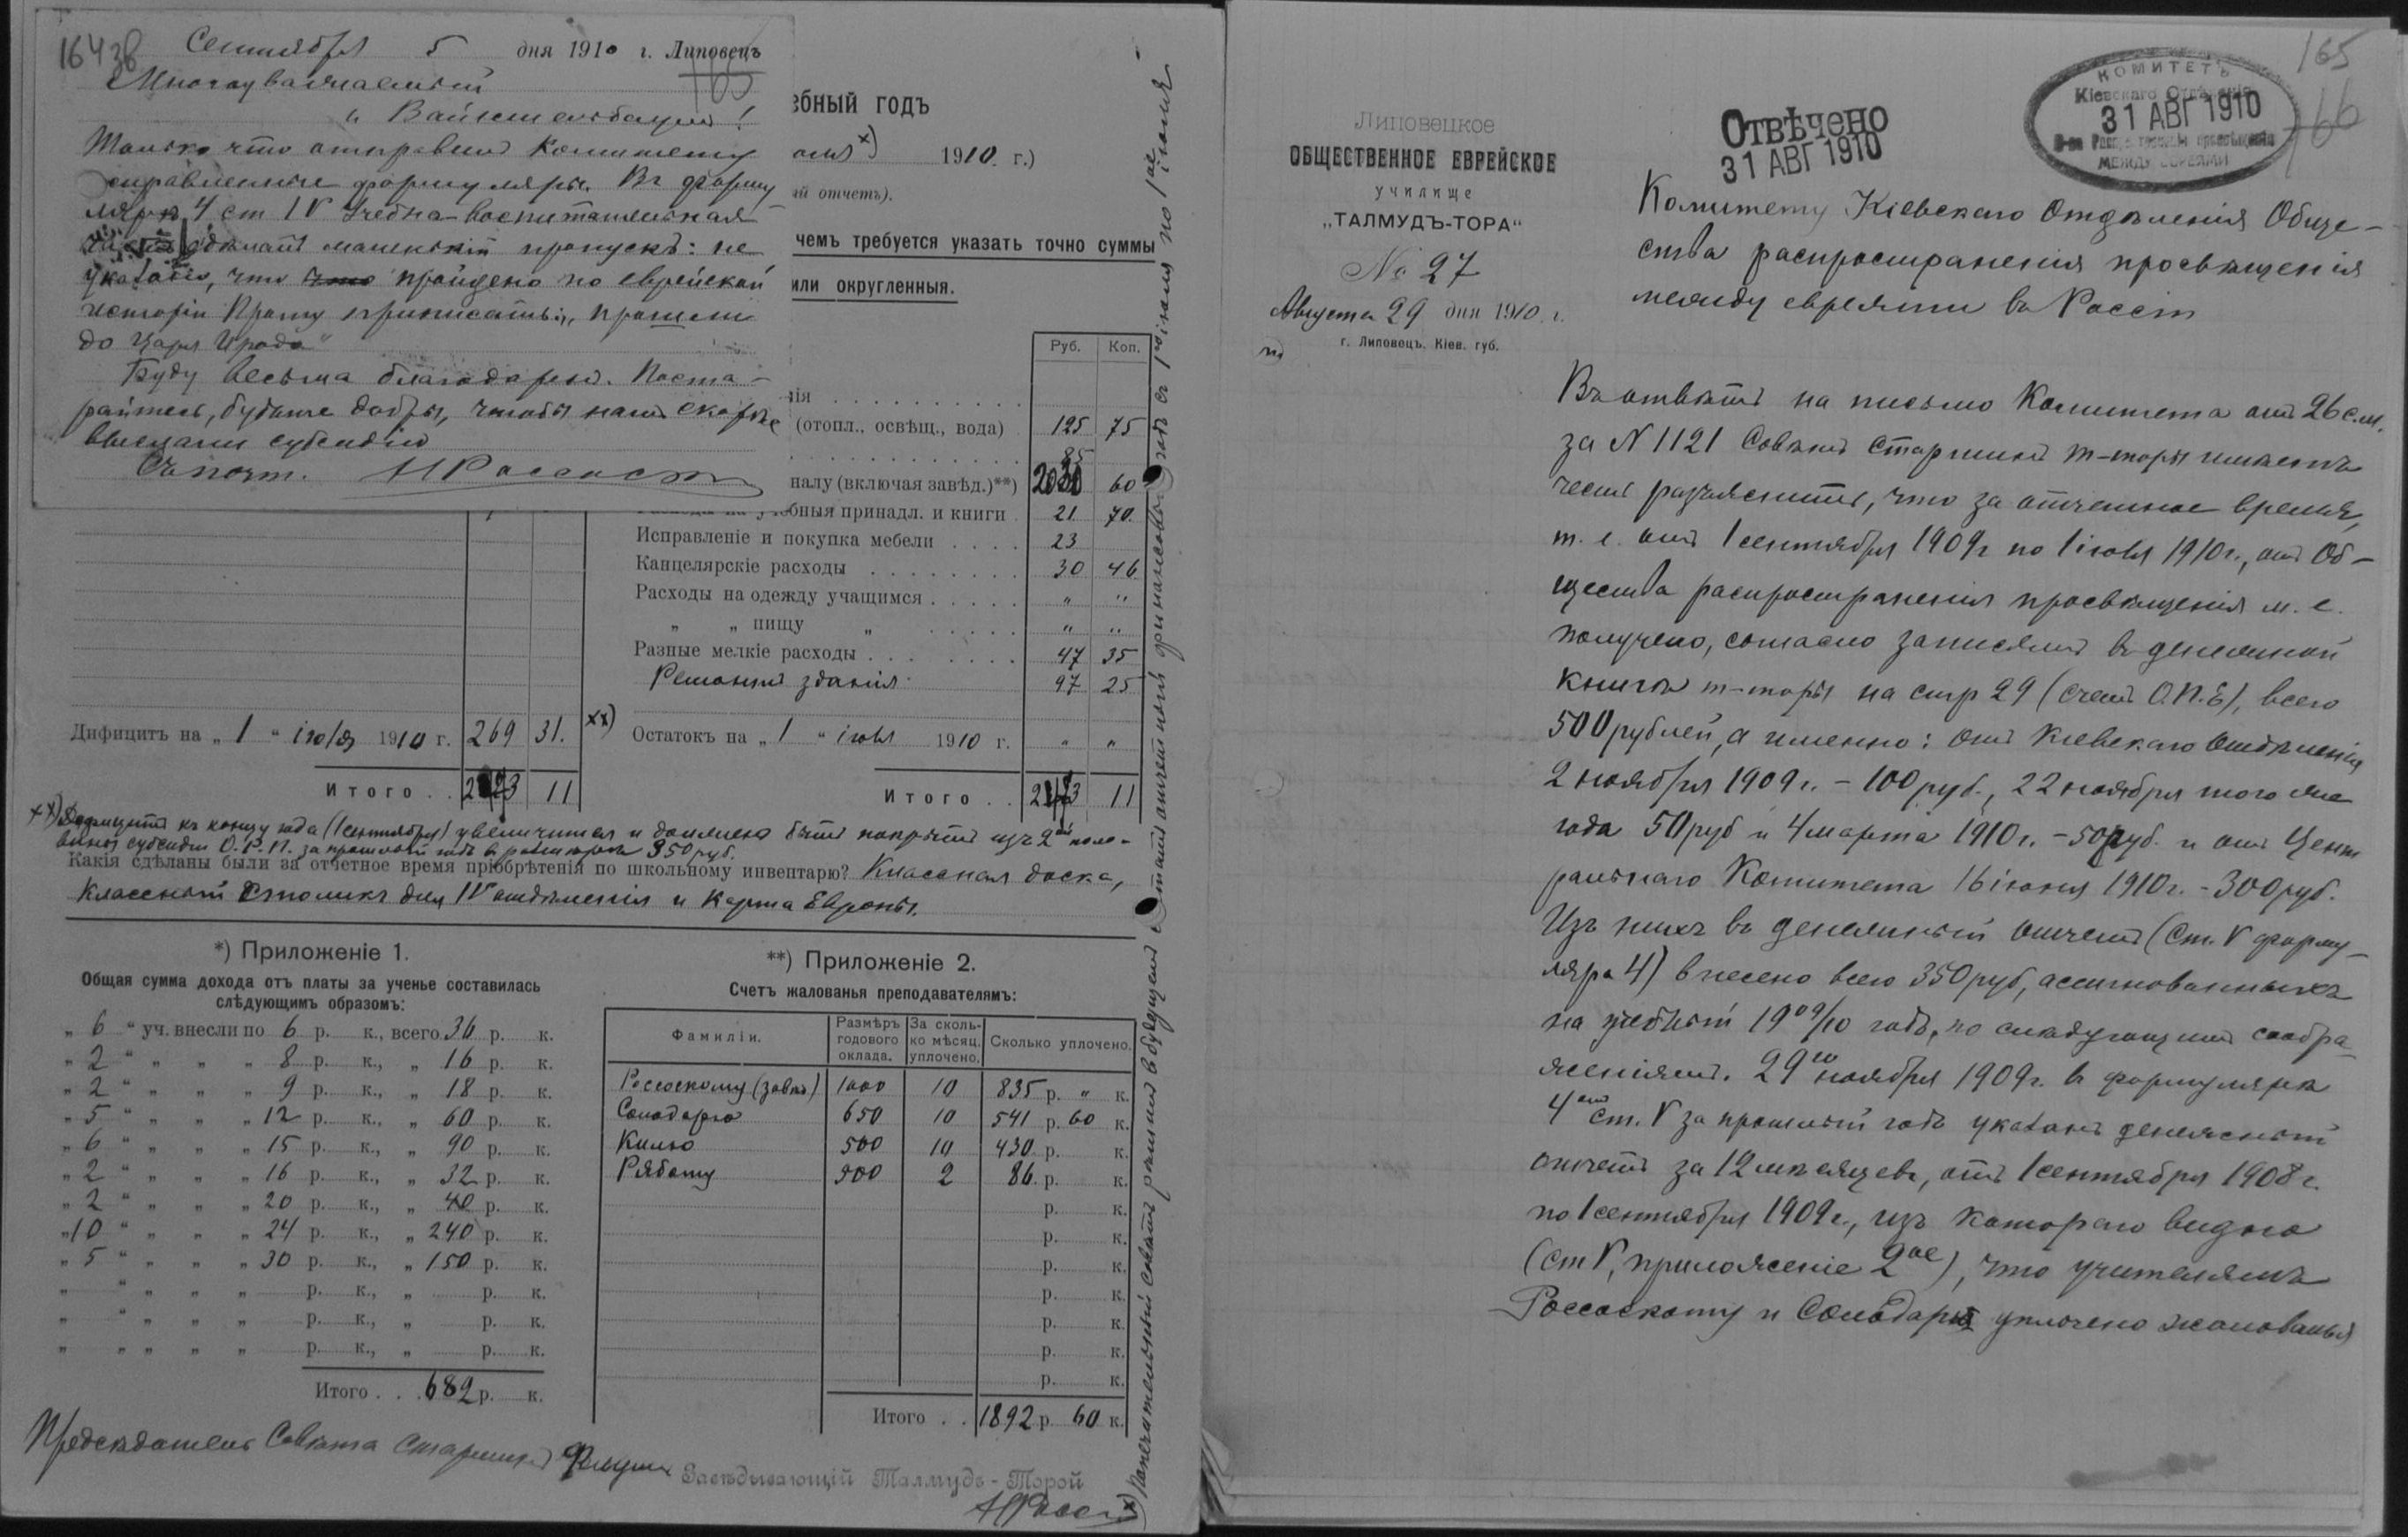 164 зв
Сентября 5 дня 1910 г. Липовецъ
Многоуважаемый
Только что отправил Комитету
справленные формуляры. Въ форму-
лярѣ 4 ст IV Учебно-воспитательная
сдѣланъ маленькій пропускъ: не
указано, что пройдено по еврейской
исторіи Прошу приписать: „прошли
до Царя Ирода“
Буду весьма благодаренъ. Поста-
райтесь, будьте добры, чтобы намъ скорѣе
выслали субсидію
Съ почт.
ебный годъ
1910. г.)
ій отчетъ).
чемъ требуется указать точно суммы
или округленныя.
Руб. Коп.
нія
(отопл., освѣщ., вода) 125 75
85
налу (включая завѣд.)**) 60
бныя принадл. и книги 21 70.
Исправленіе и покупка мебели . . . . 23
Канцелярскіе расходы . . . . . . . . 30 46
Расходы на одежду учащимся . . . . . „ „
„ „ пищу „ . . . . . „ „
Разные мелкіе расходы . . . . . . . 47 35
Ремонтъ зданія 97 25
Дифицитъ на „ 1 “ іюля 1910 г. 269 31. хх)
Остатокъ на „ 1 “ іюля 1910 г. „ „
Итого . . 11
Итого . . 11
хх) Дефицитъ къ концу года (1 сентября) увеличится и долженъ быть покрытъ изъ 2ой поло-
вины субсидіи О.Р.П. за прошлый годъ в размѣрѣ 350 руб.
Какія сдѣланы были за отчетное время пріобрѣтенія по школьному инвентарю? Классная доска,
классный столикъ для IV отдѣленія и карта Европы.
*) Приложеніе 1.
Общая сумма дохода отъ платы за ученье составилась
слѣдующимъ образомъ:
„ 6 “ уч. внесли по 6 р. к., всего 36 р. к.
„ 2 “ „ „ „ 8 р. к., „ 16 р. к.
„ 2 “ „ „ „ 9 р. к., „ 18 р. к.
„ 5 “ „ „ „ 12 р. к., „ 60 р. к.
„ 6 “ „ „ „ 15 р. к., „ 90 р. к.
„ 2 “ „ „ „ 16 р. к., „ 32 р. к.
„ 2 “ „ „ „ 20 р. к., „ 40 р. к.
„ 10 “ „ „ „ 24 р. к., „ 240 р. к.
„ 5 “ „ „ „ 30 р. к., „ 150 р. к.
„ “ „ „ „ р. к., „ р. к.
„ “ „ „ „ р. к., „ р. к.
„ „ „ „ „ р. к., „ р. к.
Итого . . . 682 р. к.
**) Приложеніе 2.
Счетъ жалованья преподавателямъ:
Фамиліи. Размѣръ годового оклада. За сколь-ко мѣсяц. уплочено. Сколько уплочено.
Россоскому (завѣд) 1000 10 835 р. „ к.
Солодарю 650 10 541 р. 60 к.
Килю 500 10 430 р. к.
Рябому 500 2 86 р. к.
р. к.
р. к.
р. к.
р. к.
р. к.
р. к.
р. к.
Итого . . 1892 р. 60 к.
Предсѣдатель Совѣта Старшинъ
Завѣдывающій Талмудъ-Торой
х) Попечительный совѣтъ рѣшилъ въ будущемъ
165
166
Липовецкое
ОБЩЕСТВЕННОЕ ЕВРЕЙСКОЕ
училище
„ТАЛМУДЪ-ТОРА“
№ 27
Августа 29 дня 1910. г.
г. Липовецъ. Кіев. губ.
Отвѣчено
31 АВГ 1910
КОМИТЕТЪ
Кіевскаго Отдѣленія
31 АВГ 1910
О-ва Распространенія просвѣщенія
МЕЖДУ ЕВРЕЯМИ
Комитету Кіевскаго Отдѣленія Обще-
ства распространенія просвѣщенія
между евреями въ Россіи
Въ отвѣтъ на письмо Комитета отъ 26 с.м.
за N 1121 Совѣтъ Старшинъ т-торы имѣетъ
честь разъяснить, что за отчетное время,
т. е. отъ 1 сентября 1909г по 1 іюля 1910г., отъ Об-
щества распространенія просвѣщенія м. е.
получено, согласно записямъ въ денежной
книгѣ т-торы на стр 29 (счетъ О.П.Е), всего
500 рублей, а именно: отъ Кіевскаго Отдѣленія
2 ноября 1909г. – 100 руб., 22 ноября того же
года 50 руб и 4 марта 1910г. – 50 руб. и отъ Цент
ральнаго Комитета 16 іюня 1910г. – 300 руб.
Изъ нихъ въ денежный отчетъ (Ст. V форму-
ляра 4) внесено всего 350 руб, ассигнованныхъ
на учебный 1909/10 годъ, по слѣдующимъ сообра-
женіямъ. 29го ноября 1909г. в формулярѣ
4омъ ст. V за прошлый годъ указанъ денежный
отчетъ за 12 мѣсяцевъ, отъ 1 сентября 1908г.
по 1 сентября 1909г., изъ котораго видно
(ст V, приложеніе 2ое), что учителямъ
Россоскому и Солодарю уплочено жалованья